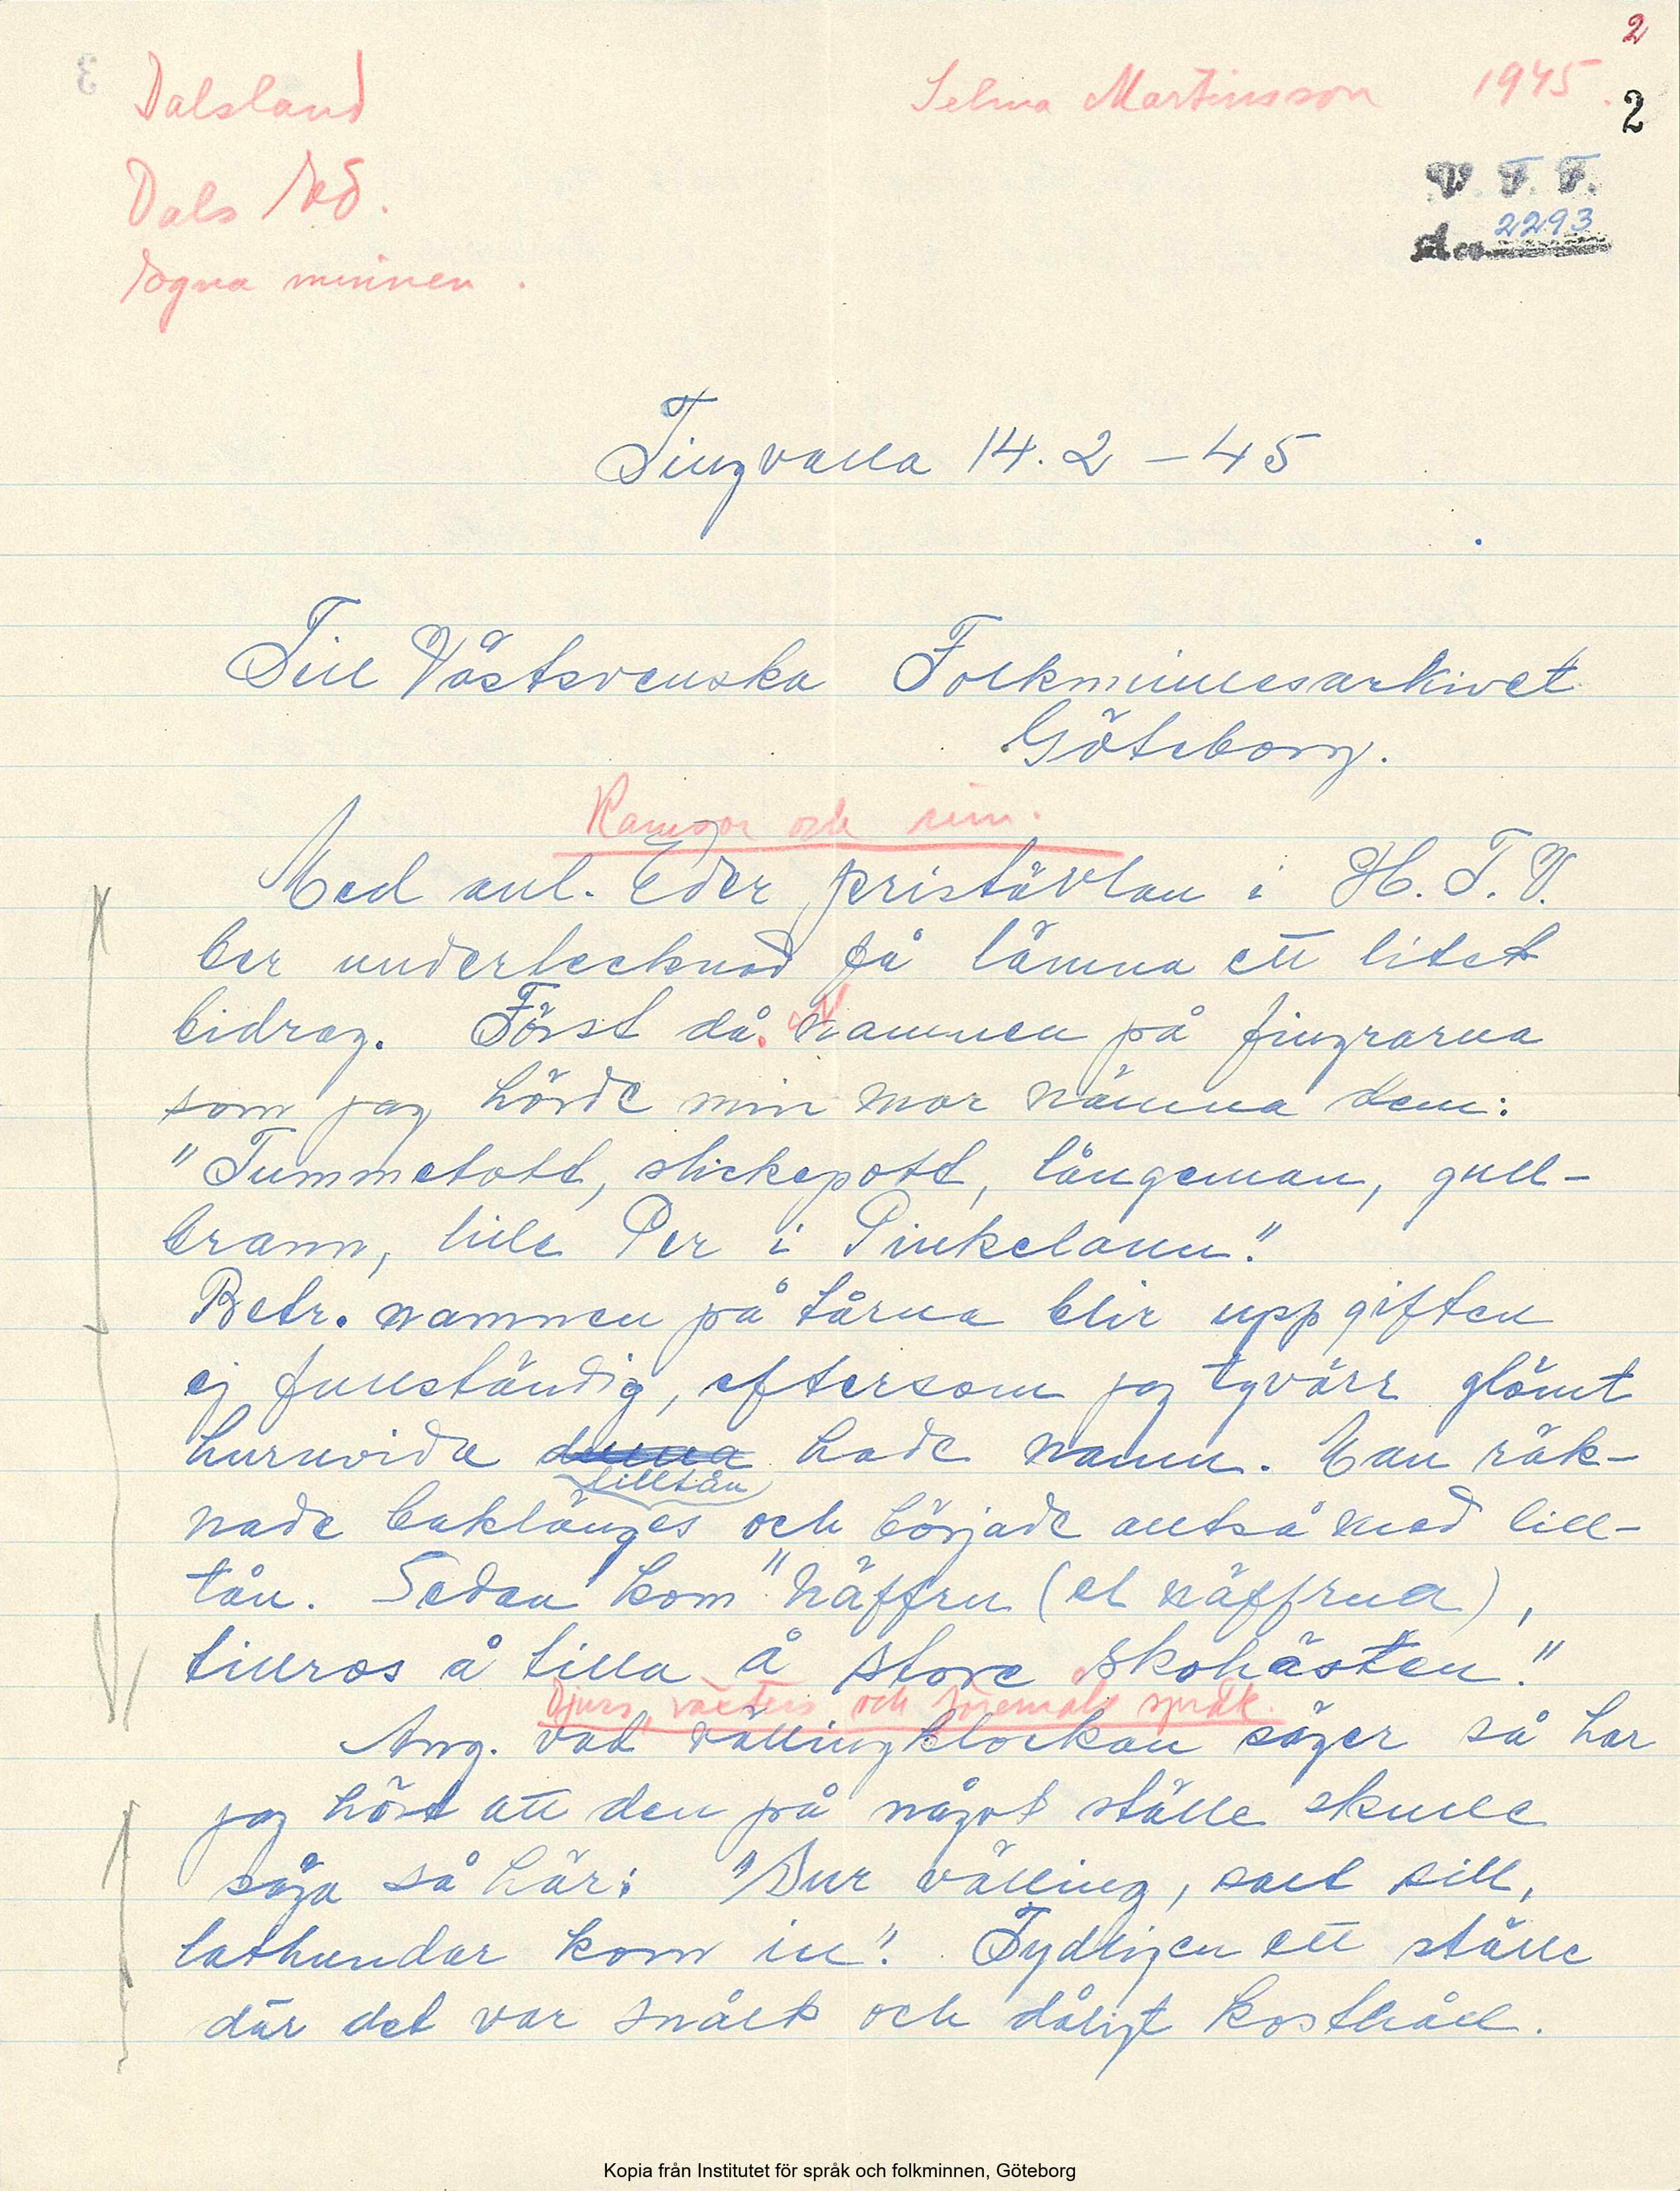 2
Dalsland Selma Martinsson 1945.
2
Dals Ed.
V. F. F.
2293
Egna minnen.
Tingvalla 14.2 – 45
Till Västsvenska Folkminnesarkivet
Göteborg.
Ramsor och rim.
Med anl. Eder pristävlan i H. T. V.
ber undertecknad få lämna ett litet
bidrag. Först då. Namnen på fingrarna
som jag hörde min mor nämna dem:
"Tummetott, slickepott, långeman, gull-
brann, lille Per i Pinkelann."
Betr. namnen på tårna blir uppgiften
ej fullständig, eftersom jag tyvärr glömt
huruvida lilltån hade namn. Man räk-
nade baklänges och började alltså med lill-
tån. Sedan kom "näffru (el näffrua),
tillros å tilla å store skohästen."
Djurs, växters och föremåls språk.
Ang. vad vällingklockan säger så har
jag hört att den på något ställe skulle
säga så här: "Sur välling, salt sill,
lathundar kom in". Tydligen ett ställe
där det var snålt och dåligt kosthåll.
Kopia från Institutet för språk och folkminnen, Göteborg